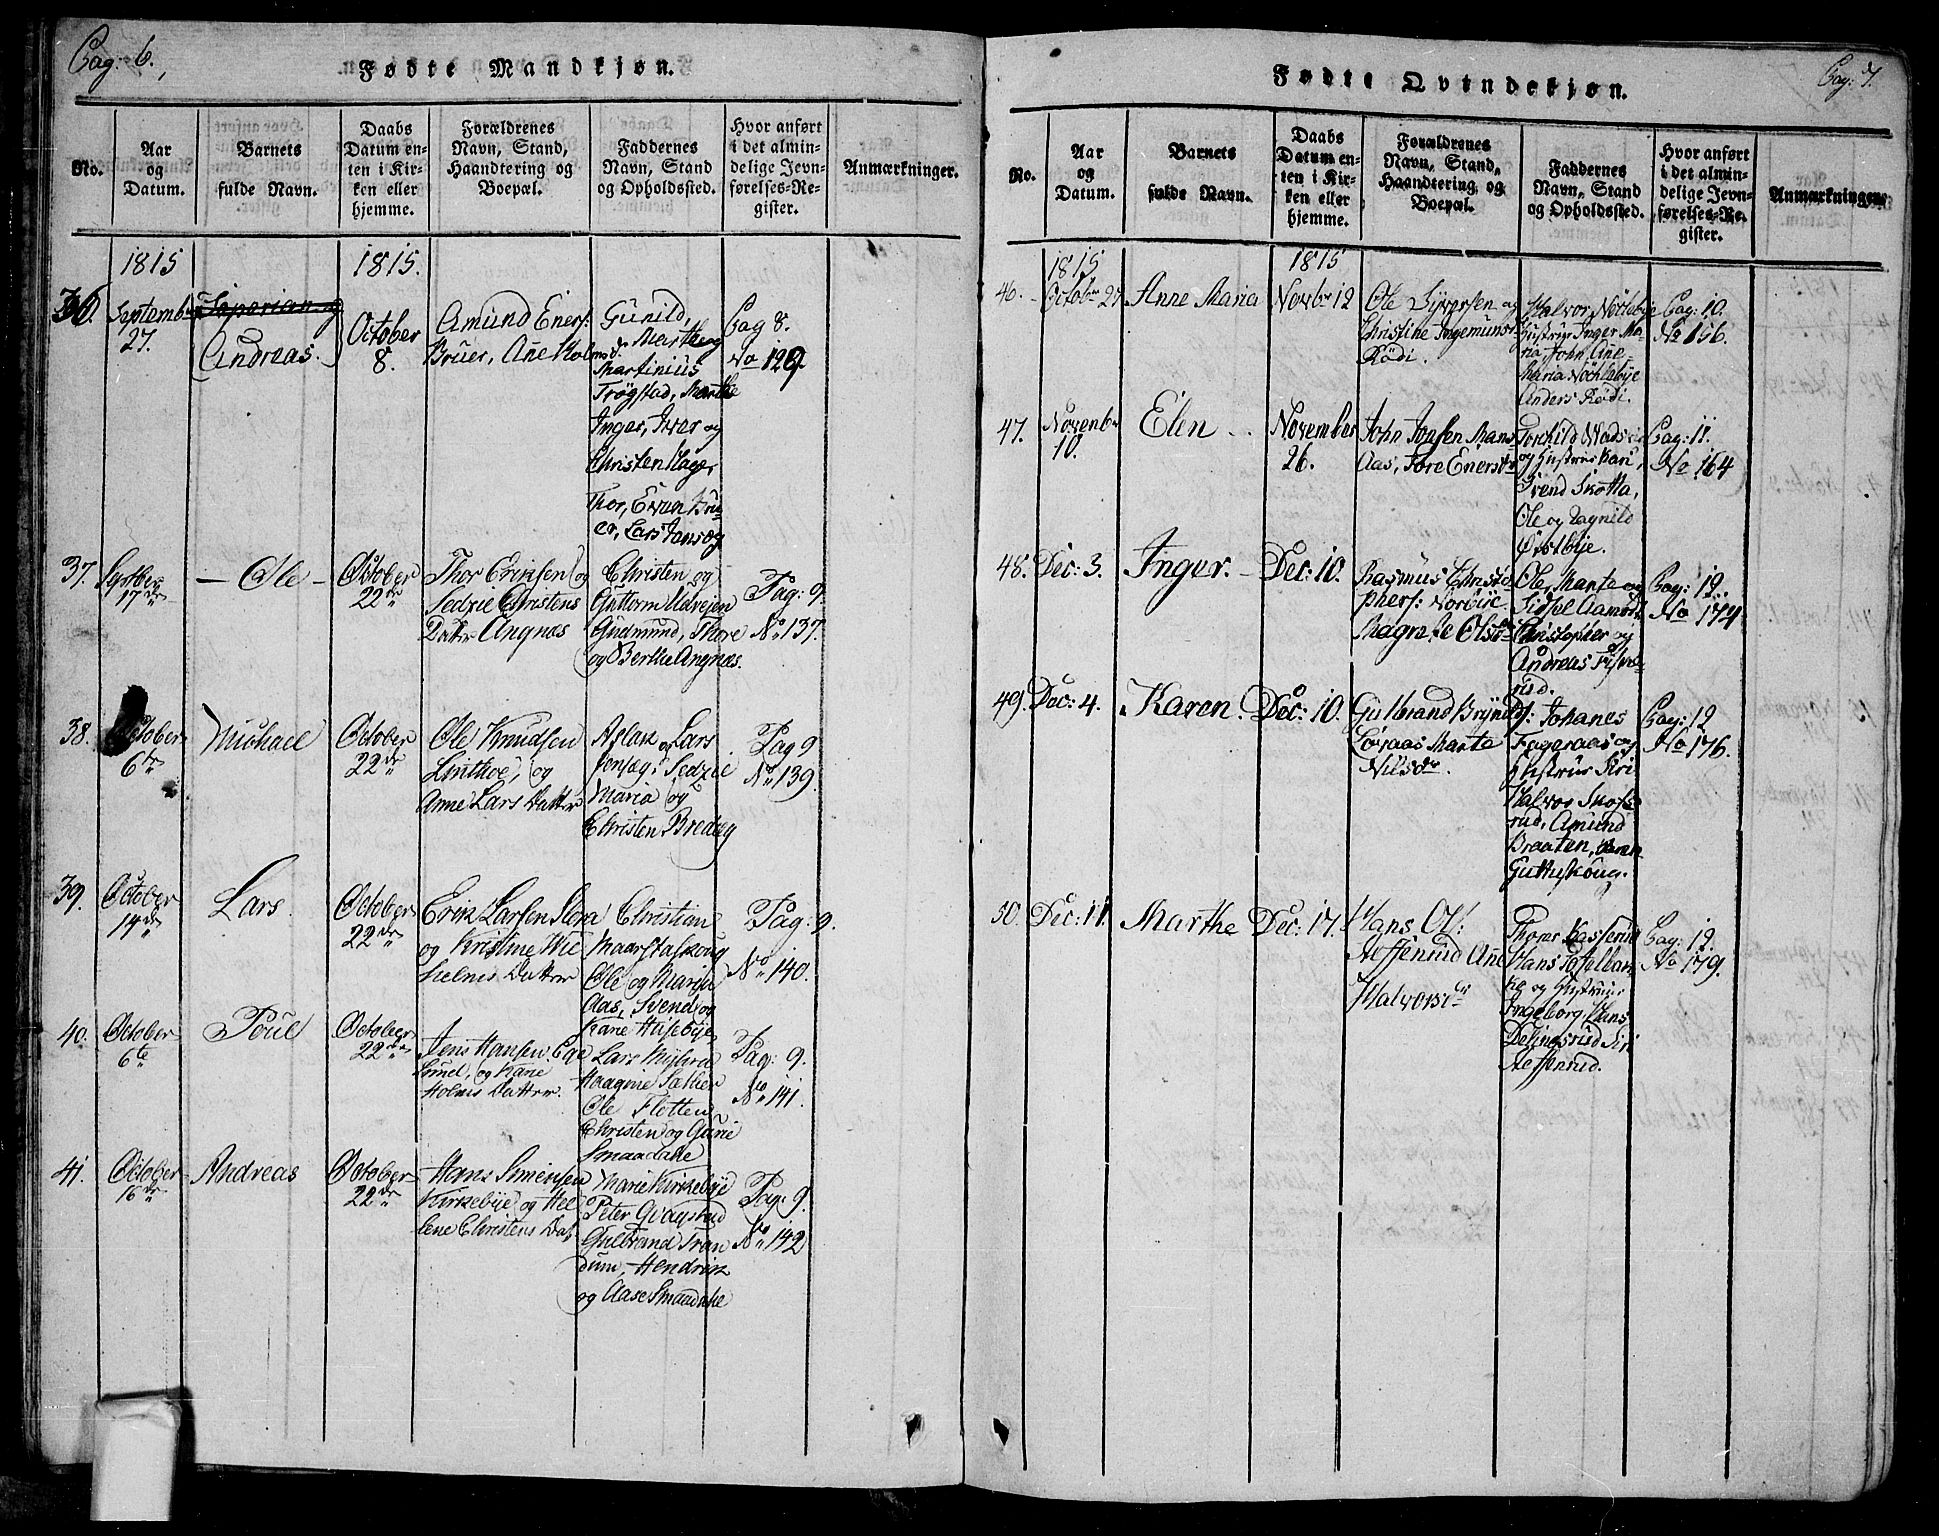 Pag: 6.
Fødte Mandkjøn.
No.
Aar og Datum.
Barnets fulde Navn.
Daabs Datum enten i Kirken eller hjemme.
Forældrenes Navn, Stand, Haandtering og Boepæl.
Faddernes Navn, Stand og Opholdssted.
Hvor anført i det almindelige Jevnførelses-Register.
Anmærkninger.
1815
1815.
36.
Septembr
27.
Andreas.
October
8.
Amund Eners:
Bruer, Ane Holmsd.
Gunild,
Marthe og
Martinius
Trøgstad, Marthe
Inger, Iver og
Christen Hager
Thor, Even Bru-
er, Lars Jansøg
Pag 8.
No 129.
37.
Septber
17de
- Ole -
October
22de
Thor Eriksen og
Sedzie Christens
Datter Angnæs
Christen og
Guttorm Udvejen
Gudmund, Thore
og Berthe Angnæs.
Pag: 9.
No 137.
38.
October
6te
Michael
October
22de
Ole Knudsen
Linthoe, og
Anne Lars Datter
Aslak, Lars
Jonsøg, Sedzie
Maria og
Christen Bredæg
Pag 9
No 139.
39.
October
14de
Lars.
October
22de
Erik Larsen Slora
og Kristine Wil
helms Datter
Christian
Maarstaskoug
Ole og Maria
Aas, Svend og
Kane Hasebye
Pag: 9.
No 140.
40.
October
6te
Poul
October
22de
Jens Hansen Ege
og Kane
Holmis Datter.
Lars Mylura
Haagine Sæther
Ole Flotten
Christen og Gurie
Smaadahle
Pag: 9.
No 141.
41.
October
16de
Andreas
October
22de
Hans Simensen
Kirkebye og Hel
lene Christens Dat.
Marie Kirkebye
Peter Gragstad
Gulbrand Tran
dum, Hendrik
og Aase Smaadahle
Pag: 9.
No 142
Pag: 7.
Fødte Qvindekjøn.
No.
Aar og Datum.
Barnets fulde Navn.
Daabs Datum enten i Kirken eller hjemme.
Forældrenes Navn, Stand, Haandtering og Boepæl.
Faddernes Navn, Stand og Opholdssted.
Hvor anført i det almindelige Jevnførelses-Register.
Anmærkninger.
1815
1815
46.
Octobr 27
Anne Maria
Novbr 12
Ole Syversen og
Christine Ingemunsd
Rødi.
Halvor Nøklebye
Hustrue Inger Ma-
ria, John Ane
Maria Nøchlebye
Anders Rødi.
Pag: 10.
No 156.
47.
Novenbr
10.
Elen -
November
26.
John Jonsen Mans
Aas, Tore Enersdr
Torkild Mads
og Hustrue Kari,
Svend Skotta,
Ole og Ragnild
Østbye.
Pag: 11.
No 164
48.
Dec: 3.
Inger. -
Dec: 10.
Rasmus Christo
phers: Norbye
Magrete Olsdr
Ole, Marte og
Sidsel Aamodt
Christopher og
Andreas
rud.
Pag: 12.
No 174
49.
Dec: 4.
Karen.
Dec: 10.
Gulbrand Brynild:
Løraas Marte
Nilsdr.
Johanes
Fageraas og
Hustrue Siri
Halvor Skofs
rud, Amund
Braaten, Karen
Guttuskoug.
Pag: 12
No 176.
50.
Dec: 11.
Marthe
Dec: 17.
Hans Ols:
Aeffenrud Ane
Halvorsdr
Thomas Kasserud
Hans Tafelban
ke og Hustrue
Ingeborg, Hans
Dellingsrud Siri
Aeffenrud.
Pag: 12.
No 179.